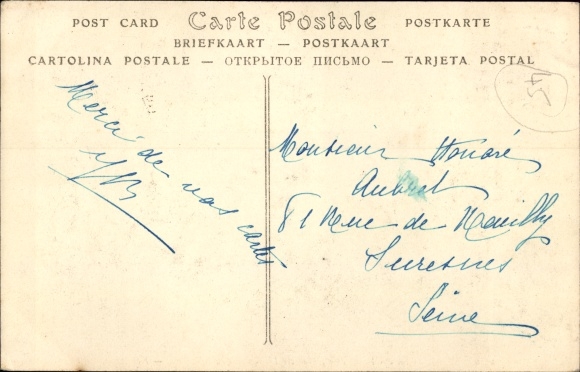 POST CARD Carte Postale POSTKARTE
BRIEFKAART — POSTKAART
CARTOLINA POSTALE — ОТКРЫТОЕ ПИСЬМО — TARJETA POSTAL
Merci de vos cartes
Monsieur Honoré
Aubret
81 Rue de Neuilly
Suresnes
Seine